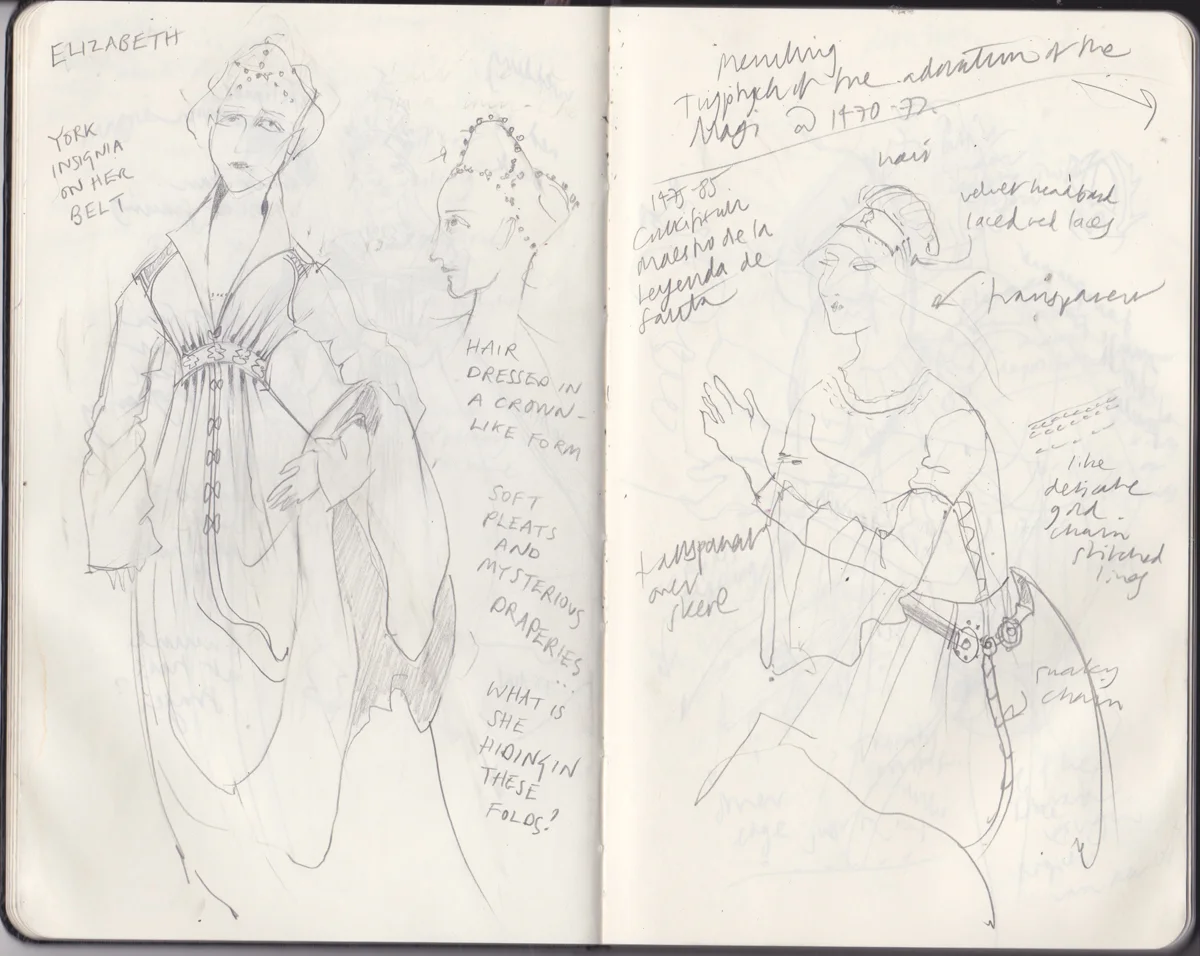 ELIZABETH
YORK
INSIGNIA
ON HER
BELT
HAIR
DRESSED IN
A CROWN-
LIKE FORM
SOFT
PLEATS
AND
MYSTERIOUS
DRAPERIES
...
WHAT IS
SHE
HIDING IN
THESE
FOLDS?
Memling
Triptych of the adoration of the
Magi @ 1470-72.
hair
velvet headband
laced red laces
1475-85
Crucifixion
maestro de la
Leyenda de
Santa
transparent
like
delicate
gold
chain
stitched
lines
transparent
over
snaky
chain